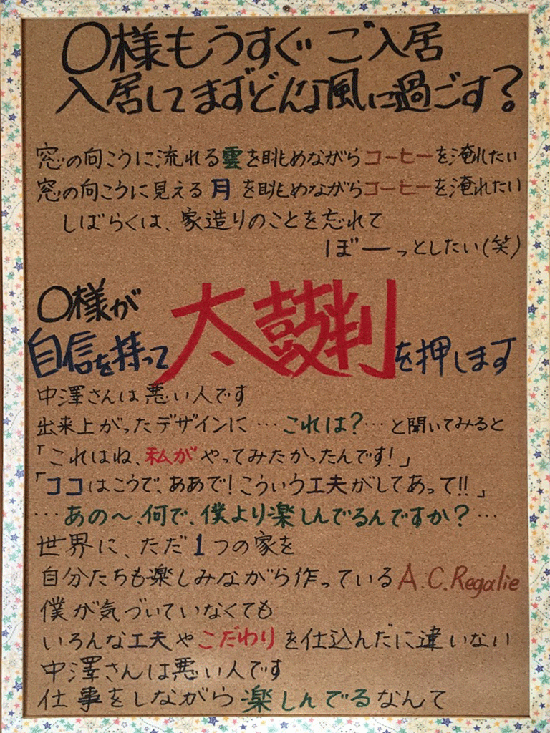 〇様もうすぐご入居
入居してまずどんな風に過ごす？
窓の向こうに流れる雲を眺めながらコーヒーを淹れたい
窓の向こうに見える月を眺めながらコーヒーを淹れたい
しばらくは、家造りのことを忘れて
ぼーーっとしたい(笑)
〇様が
自信を持って太鼓判を押します
中澤さんは悪い人です
出来上がったデザインに…これは？…と聞いてみると
「これはね、私がやってみたかったんです！」
「ココはこうで、ああで！こういう工夫がしてあって!!」
…あの～、何で、僕より楽しんでるんですか？…
世界に、ただ1つの家を
自分たちも楽しみながら作っているA.C.Regalie
僕が気づいていなくても
いろんな工夫やこだわりを仕込んだに違いない
中澤さんは悪い人です
仕事をしながら楽しんでるなんて